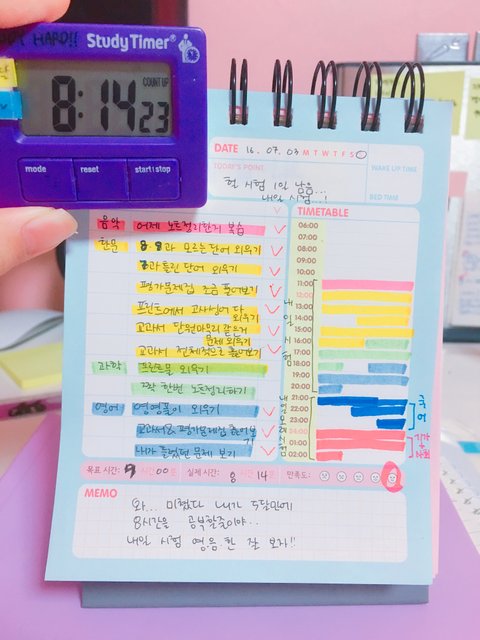 StudyTimer®
8:14 23
COUNT UP
mode
reset
start|stop
DATE 16. 07. 03 M T W T F S
TODAY'S POINT
WAKE UP TIME
헐 시험 1일 남음...
내일 시험...!
BED TIME
TIMETABLE
음악 어제 노트정리한거 복습
한문 8.9과 모르는 단어 외우기
단어 외우기
평가문제집 조금 풀어보기
프린트에서 고사성어 다 외우기
교과서 단원마무리 같은거 문제 외우기
교과서 전체적으로 훑어보기
과학 프린트물 외우기
한번 노트정리하기
영어 영영풀이 외우기
교과서& 평가문제집
내가 틀렸던 문제 보기
06:00
07:00
08:00
09:00
10:00
11:00
12:00
13:00
14:00
15:00
16:00
17:00
18:00
19:00
20:00
21:00
22:00
23:00
24:00
01:00
02:00
내일시험
국어
목표 시간: 9시간 00분 실제 시간: 8시간 14분 만족도:
MEMO
와... 미쳤다 내가 5달만에
8시간을 공부할줄이야...
내일 시험 영.음.한 잘 보자!!